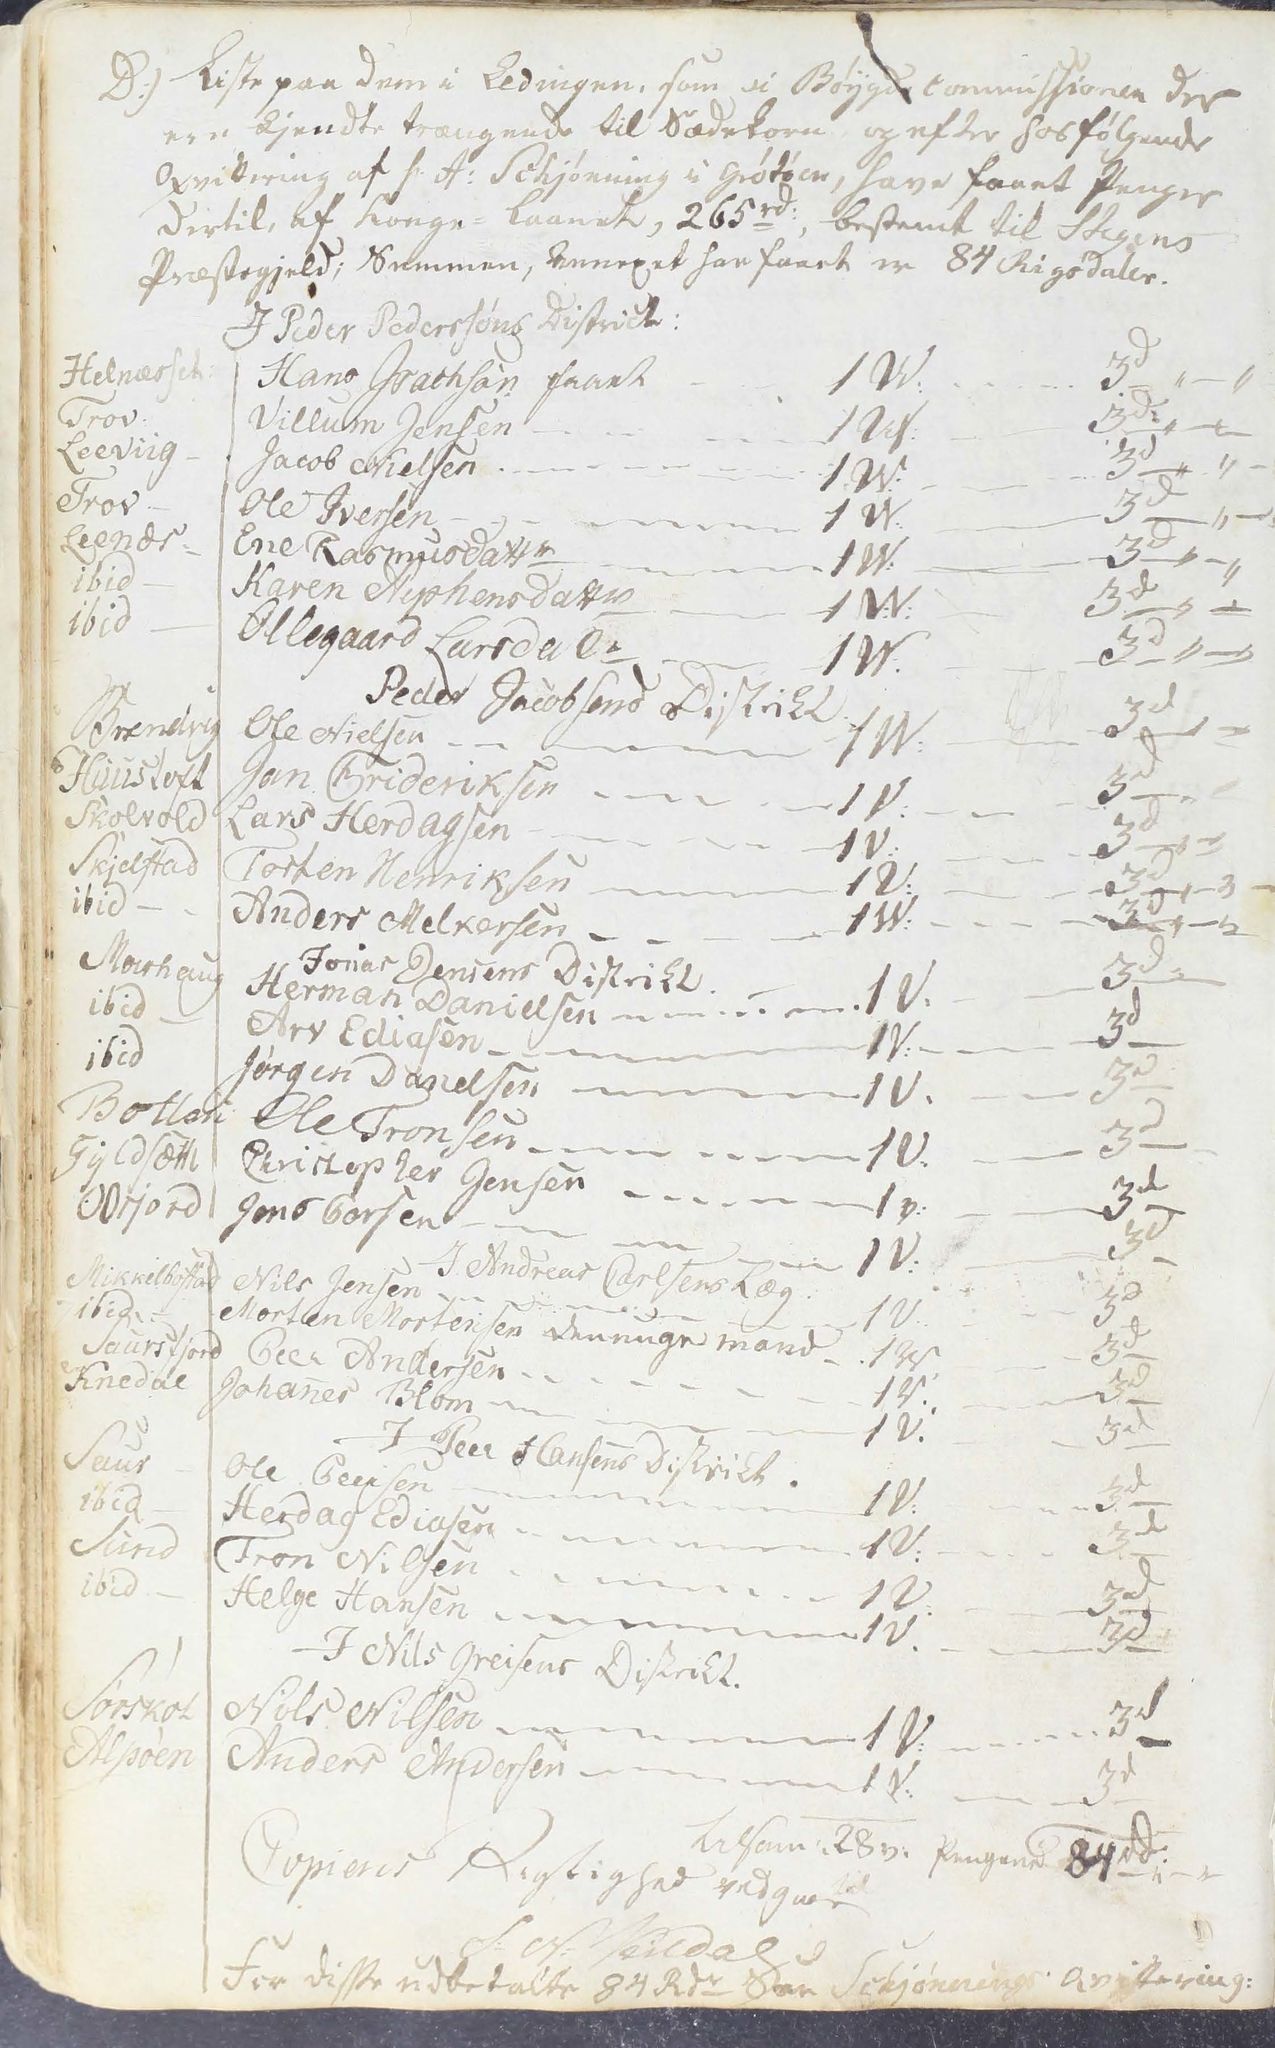 D:) Liste paa dem i Ledingen, som vi Böygde Commissionen der
ere kjendte trængende til Sædekorn, og efter hosfølgende
Qvittering af hr A: Schjønning i Grøtøen, have faaet Penger
dertil, af Konge-Laanet, 265 rd:, bestemt til Stegens
Præstegjeld; Summen, Annexet har faaet er 84 Rigsdaler.
I Peder Pederssöns District:
Helnæsset: Hans Isachsøn faaet 1 W: 3d " "
Trov: Villum Jensen 1 W: 3d: " "
Leeviig Jacob Nielsen 1 W: 3d " "
Trov Ole Iversen 1 W: 3d "
Leenæs Ene Rasmusdatter 1 W: 3d " "
ibid Karen Stephensdatter 1 W: 3d "
ibid Ollegaard Larsdatter 1 W: 3d "
Peder Jacobsens Distrikt
Brendvig Ole Nielsen 1 W: 3d
Huustoft Jan Frideriksen 1 V: 3d
Skolvold Lars Herdagsen 1 V: 3d
Skjelstad Torsten Henriksen 1 V: 3d
ibid Anders Melkersen 1 W: 3d
Jonas Jensens Distrikt.
Morhaug Herman Danielsen 1 V: 3d
ibid Arv Ediasen 1 V: 3d
ibid Jørgen Danelsen 1 V. 3d
Botten Ole Tronsen 1 V. 3d
Gyldsætt Christopher Jensen 1 v: 3d
Jens 1 V: 3d
I Andreas Carlsens Læg.
Mikkelbostad Nils Jensen 1 V: 3d
ibid Morten Mortensen mand 1 W 3d
Saursfjord Peer Andersen 1 V. 3d
Knedal Johanes Blom 1 V. 3d
I Peer Hansens Distrikt.
Saur Ole Peersen 1 V: 3d
ibid Herdag Ediasen 1 V: 3d
Sund Tron Nilsen 1 V: 3d
ibid Helge Hansen 1 V. 3d
I Nils Greisens Distrikt.
Sørskot Nils Nilsen 1 V: 3d
Alpøen Anders Andersen 1 V: 3d
tilsam: 28 v: Pengene 84 rd:
Copiens Rigtighed vedgaar

For disse udbetalte 84 Rdr Schjønnings Qvittering: